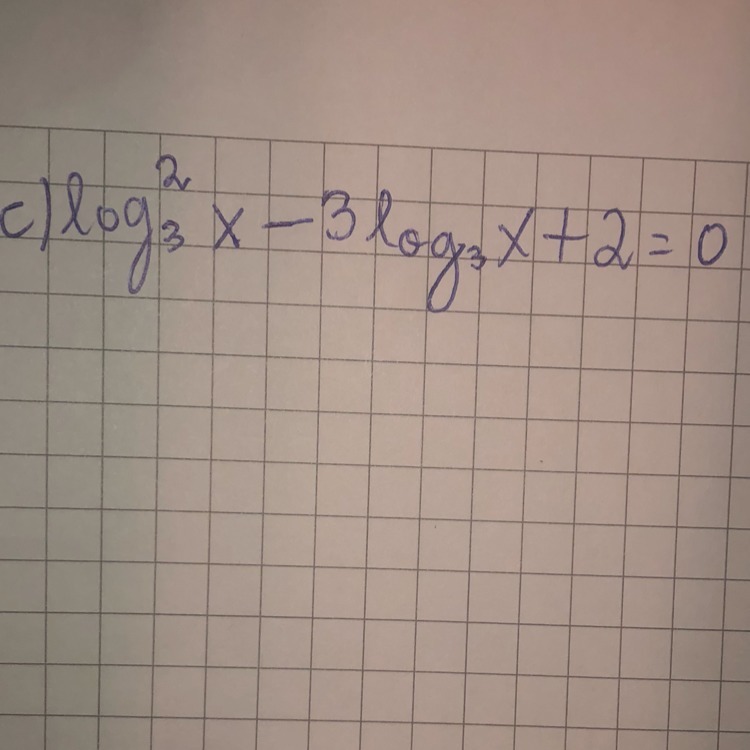 c) log₃² x − 3 log₃ x + 2 = 0